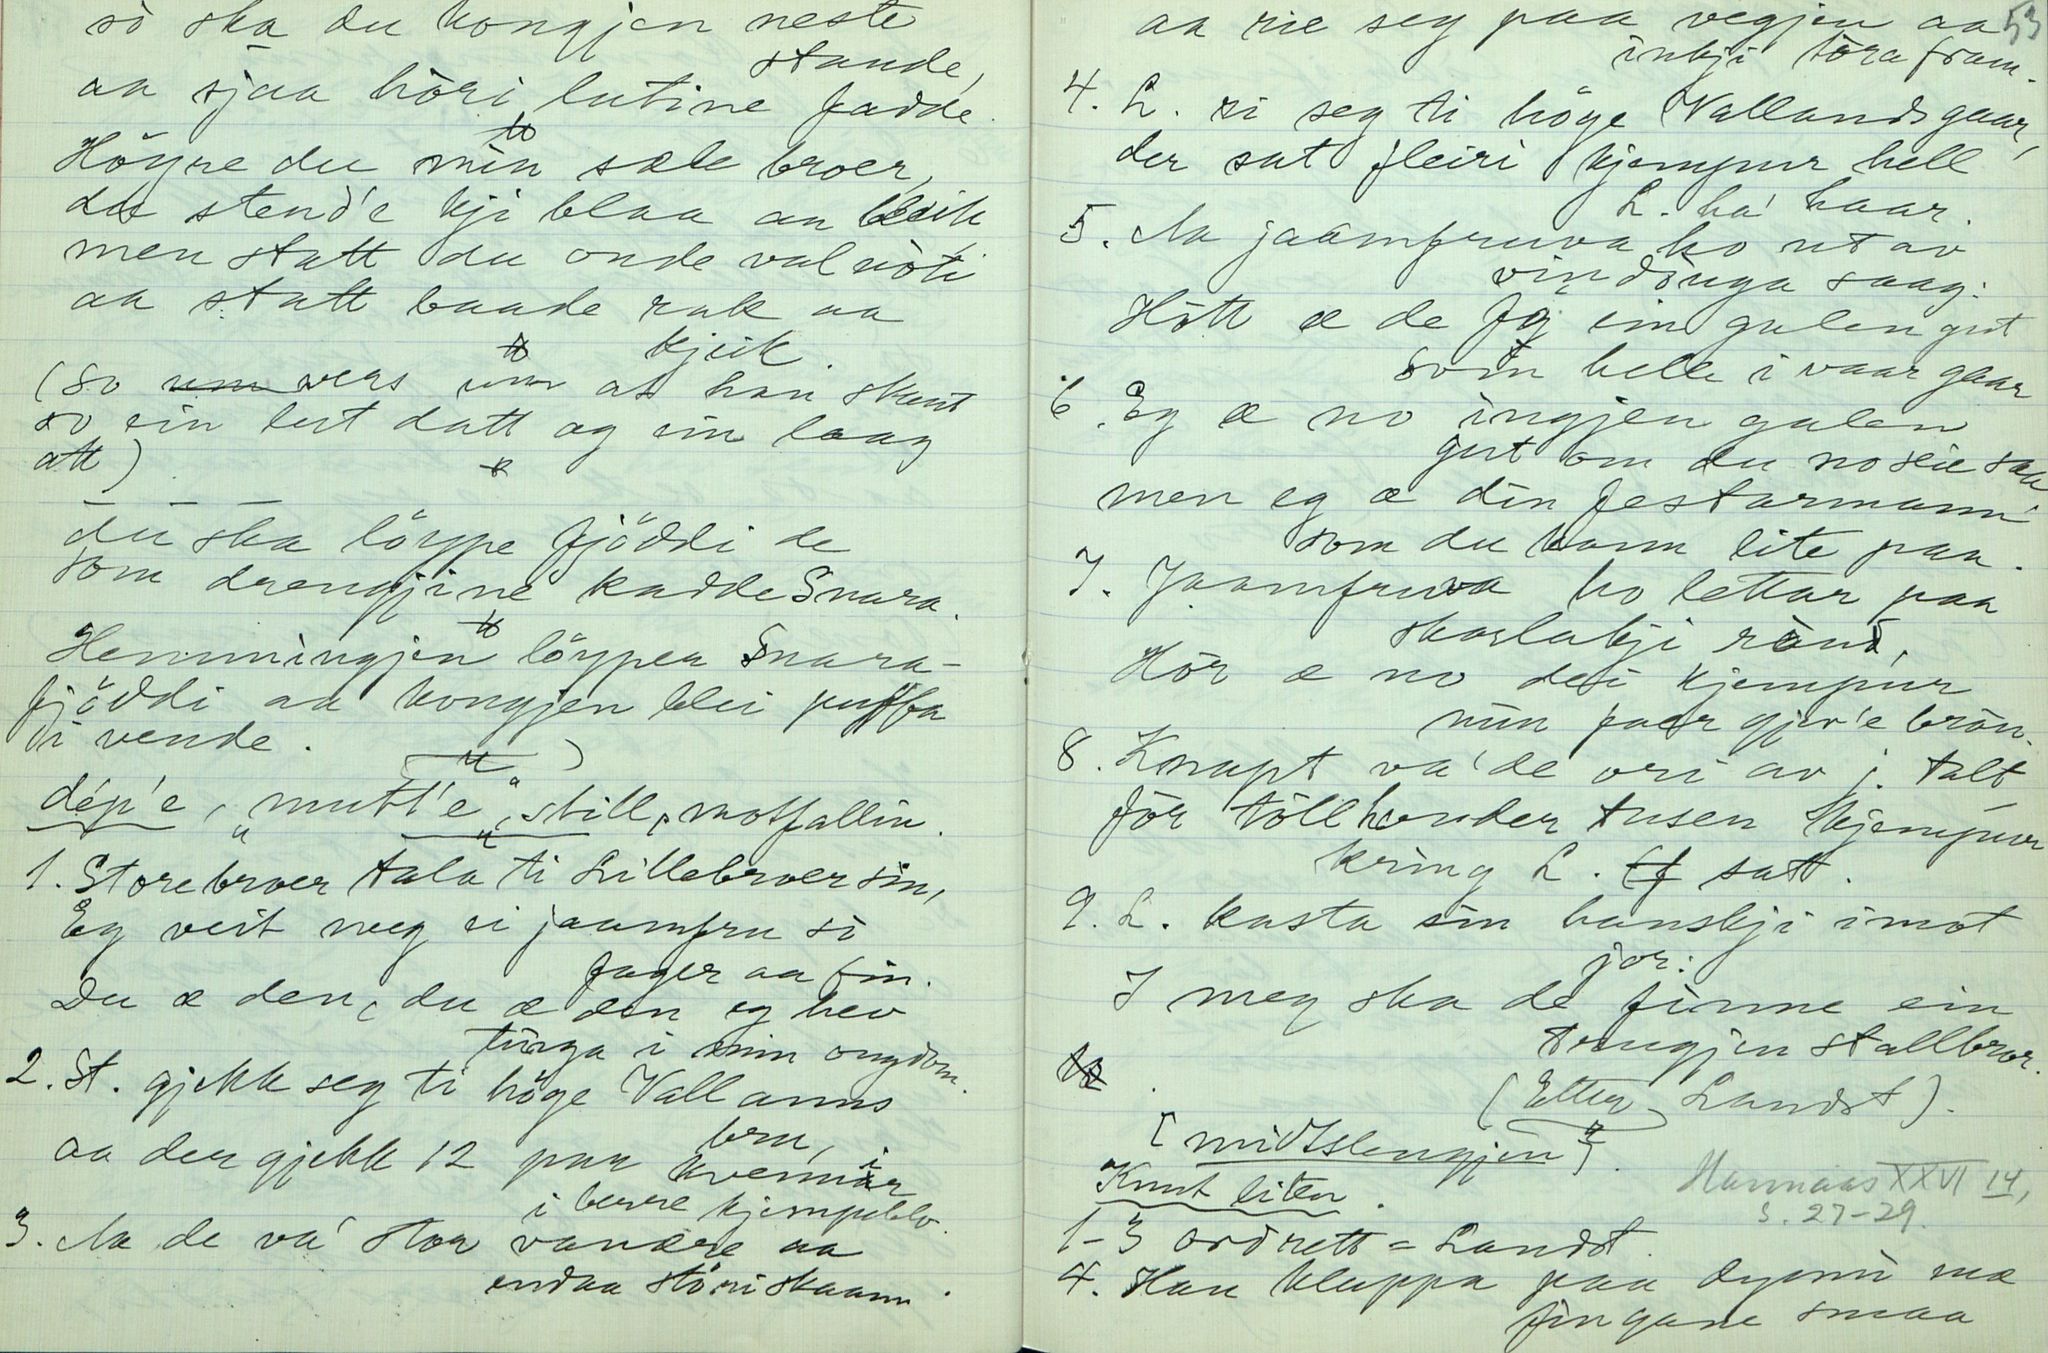 so ska du kongjen neste
stande,
aa sjaa hòri lutine fadde.
Høyre du min sæle broer,
du stend'e kji blaa an bleik
men statt du onde valnòti
aa statt baade rak aa
kjeik.
(so vers um at han skaut
so ein lut datt og ein laag
att)
du ska löype fjöddi de
som drengjine kadde Snara.
Hemmingjen löyper Snara-
fjöddi aa kongjen blei puffa
i vende.
dép'e, "mutt'e", still, motfallin.
1. Storebroer tala ti Lillebroer sin,
Eg veit meg ei jaamfru so
fager aa fin.
Du æ den, du æ den eg hev
tinga i min ongdom.
2. St. gjekk seg ti höge Vallanns
bru,
aa der gjekk 12 paa kvennir
i berre kjempeblo.
3. Aa de va' stor vanære aa
endaa störri skaam.
53
aa rie seg paa vegjen aa
inkji tòra fram.
4. L. ri seg ti höge Vallandsgaar,
der sat fleiri kjempur hell
L. ha' haar.
5. Aa jaamfruva ho ut av
vindòuga saag:
Hòtt æ de fö ein galen gut
som helle i vaar gaar
6. Eg æ no ingjen galen
gut om du no seie saa
men eg æ din festarmann
som du kann lite paa.
7. Jaamfruva ho lettar paa
skarlakji rònd,
Hòr æ no dei kjempur
min faer gjev'e bròn.
8. Knapt va' de ori av j. talt
för töllhonder tusen kjempur
kring L. satt.
9. L. kasta sin hanskji imot
jor:
I meg ska de finne ein
trengjen stallbror.
(Etter Landst).
[midtslengjen].
Knut liten.
Hannaas XXVI 14,
s. 27-29.
1-3 ordrett = Landst.
4. Han kluppa paa dynni mæ
fingane smaa